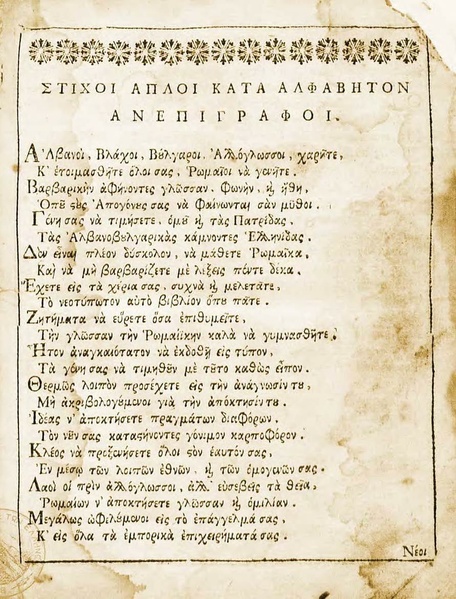 ΣΤΙΧΟΙ ΑΠΛΟΙ ΚΑΤΑ ΑΛΦΑΒΗΤΟΝ
ΑΝΕΠΙΓΡΑΦΟΙ.
Ἀλβανοὶ, Βλάχοι, Βούλγαροι, Ἀλλόγλωσσοι, χαρῆτε,
Κ' ἑτοιμασθῆτε ὅλοι σας, Ῥωμαῖοι νὰ γενῆτε.
Βαρβαρικὴν ἀφήνοντες γλῶσσαν, φωνὴν, ϗ ἤθη,
Ὁποῦ στοὺς Ἀπογόνους σας νὰ φαίνωνται σὰν μῦθοι.
Γένη σας νὰ τιμήσετε, ὁμοῦ ϗ τὰς Πατρίδας,
Τὰς Ἀλβανοβουλγαρικὰς κάμνοντες Ἑλληνίδας.
Δὲν εἶναι πλέον δύσκολον, νὰ μάθετε Ῥωμαίκα,
Καὶ νὰ μὴ βαρβαρίζετε μὲ λέξεις πέντε δέκα.
Ἔχετε εἰς τὰ χέρια σας, συχνὰ ϗ μελετᾶτε,
Τὸ νεοτύπωτον αὐτὸ βιβλίον ὅπου πᾶτε.
Ζητήματα νὰ εὕρετε ὅσα ἐπιθυμεῖτε,
Τὴν γλῶσσαν τὴν Ῥωμαίικην καλὰ νὰ γυμνασθῆτε.
Ἦτον ἀναγκαιότατον νὰ ἐκδοθῇ εἰς τύπον,
Τὰ γένη σας νὰ τιμηθοῦν μὲ τοῦτο καθὼς εἶπον.
Θερμῶς λοιπὸν προσέχετε εἰς τὴν ἀνάγνωσίν του,
Μὴ ἀκριβολογούμενοι γιὰ τὴν ἀπόκτησίν του.
Ἰδέας ν' ἀποκτήσετε πραγμάτων διαφόρων,
Τὸν νοῦν σας καταστήνοντες γόνιμον καρποφόρον.
Κλέος νὰ προξενήσετε ὅλοι στὸν ἑαυτόν σας,
Ἐν μέσῳ τῶν λοιπῶν ἐθνῶν, ϗ τῶν ὁμογενῶν σας.
Λαοὶ οἱ πρὶν ἀλλόγλωσσοι, ἀλλ' εὐσεβεῖς τὰ θεῖα,
Ῥωμαίων ν' ἀποκτήσετε γλῶσσαν ϗ ὁμιλίαν.
Μεγάλως ὠφελούμενοι εἰς τὸ ἐπάγγελμά σας,
Κ' εἰς ὅλα τὰ ἐμπορικὰ ἐπιχειρήματά σας.
Νέοι